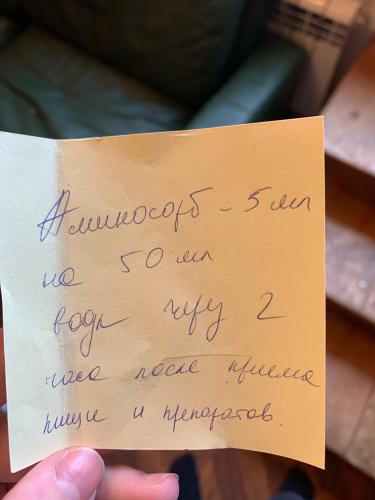 Аминосорб - 5 мл
на 50 мл
воды через 2
часа после приема
пищи и препаратов.